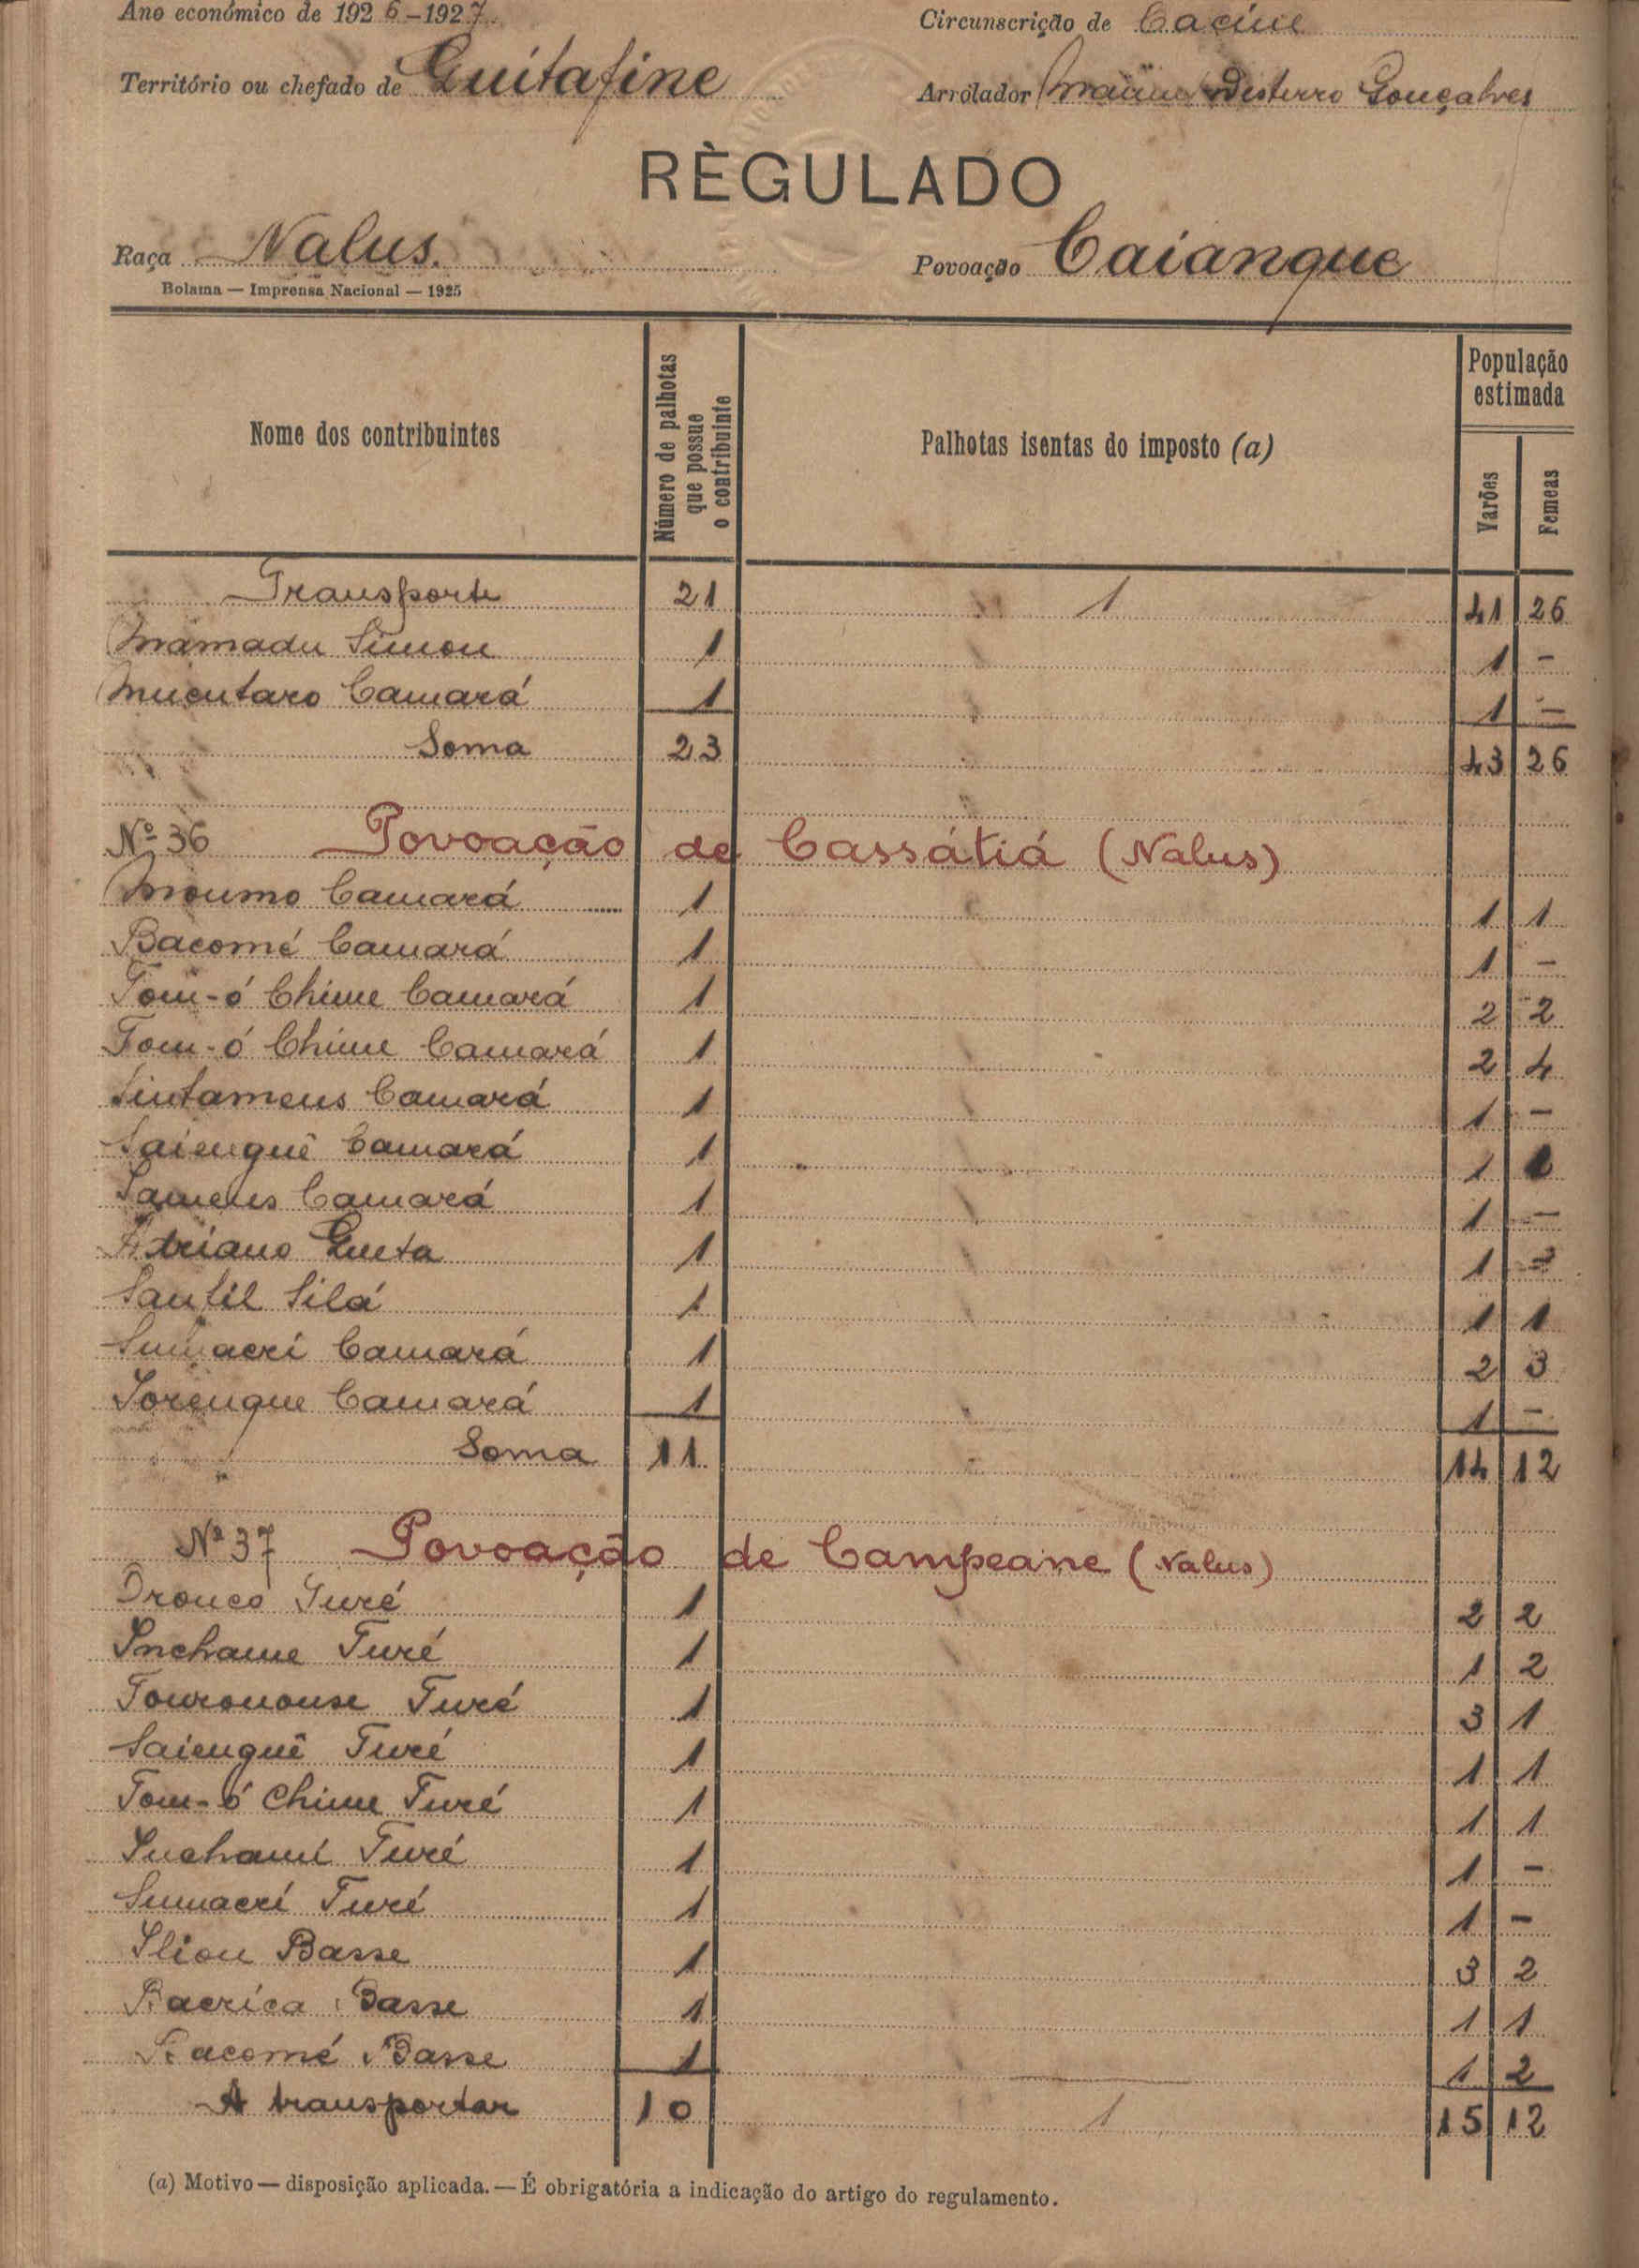 Ano económico de 1926-1927. Circunscrição de Cacine
Território ou chefado de Guitafine Arrolador Desterro Gonçalves
RÈGULADO
Raça Nalus. Povoação Caianque
Bolama — Imprensa Nacional — 1925
Nome dos contribuintes Número de palhotas que possue o contribuinte Palhotas isentas do imposto (a) População estimada Varões Femeas
Transporte 21 1 41 26
Mamadu Simon 1 1 -
Mucutaro Camará 1 1 -
Soma 23 43 26
Nº 36 Povoação de Cassátiá (Nalus)
Moumo Camará 1 1 1
Bacomé Camará 1 1 -
Tom-ó Chime Camará 1 2 2
Tom-ó Chime Camará 1 2 4
Sintameus Camará 1 1 -
Saienguê Camará 1 1
Sameus Camará 1 1 -
Adriano Gueta 1 1
Saulil Silá 1 1 1
Sumacri Camará 1 2 3
Sorengue Camará 1 1 -
Soma 11 14 12
Nº 37 Povoação de Campeane (Nalus)
Dronco Turé 1 2 2
Inchame Turé 1 1 2
Turé 1 3 1
Saienguê Turé 1 1 1
Tom-ó Chime Turé 1 1 1
Suchami Turé 1 1 -
Sumacri Turé 1 1 -
Iliou Basse 1 3 2
Bacrica Basse 1 1 1
Bacomé Basse 1 1 2
A transportar 10 1 15 12
(a) Motivo — disposição aplicada. — É obrigatória a indicação do artigo do regulamento.